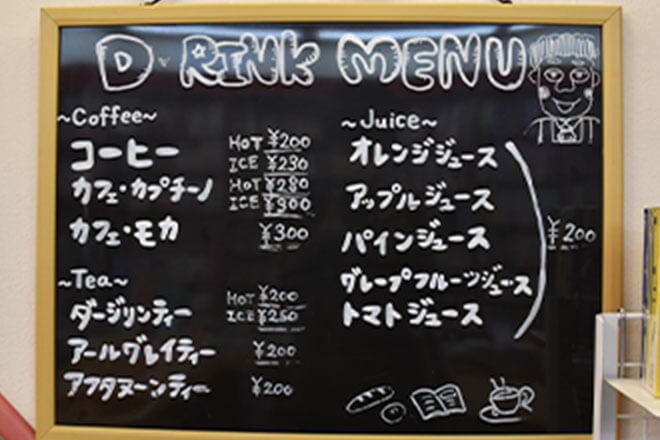 DRINK MENU
~Coffee~
コーヒー HOT ¥200
ICE ¥230
カフェ・カプチーノ HOT ¥280
ICE ¥300
カフェ・モカ ¥300
~Tea~
ダージリンティー HOT ¥200
ICE ¥250
アールグレイティー ¥200
アフタヌーンティー ¥200
~Juice~
オレンジジュース
アップルジュース
パインジュース
グレープフルーツジュース
トマトジュース
¥200